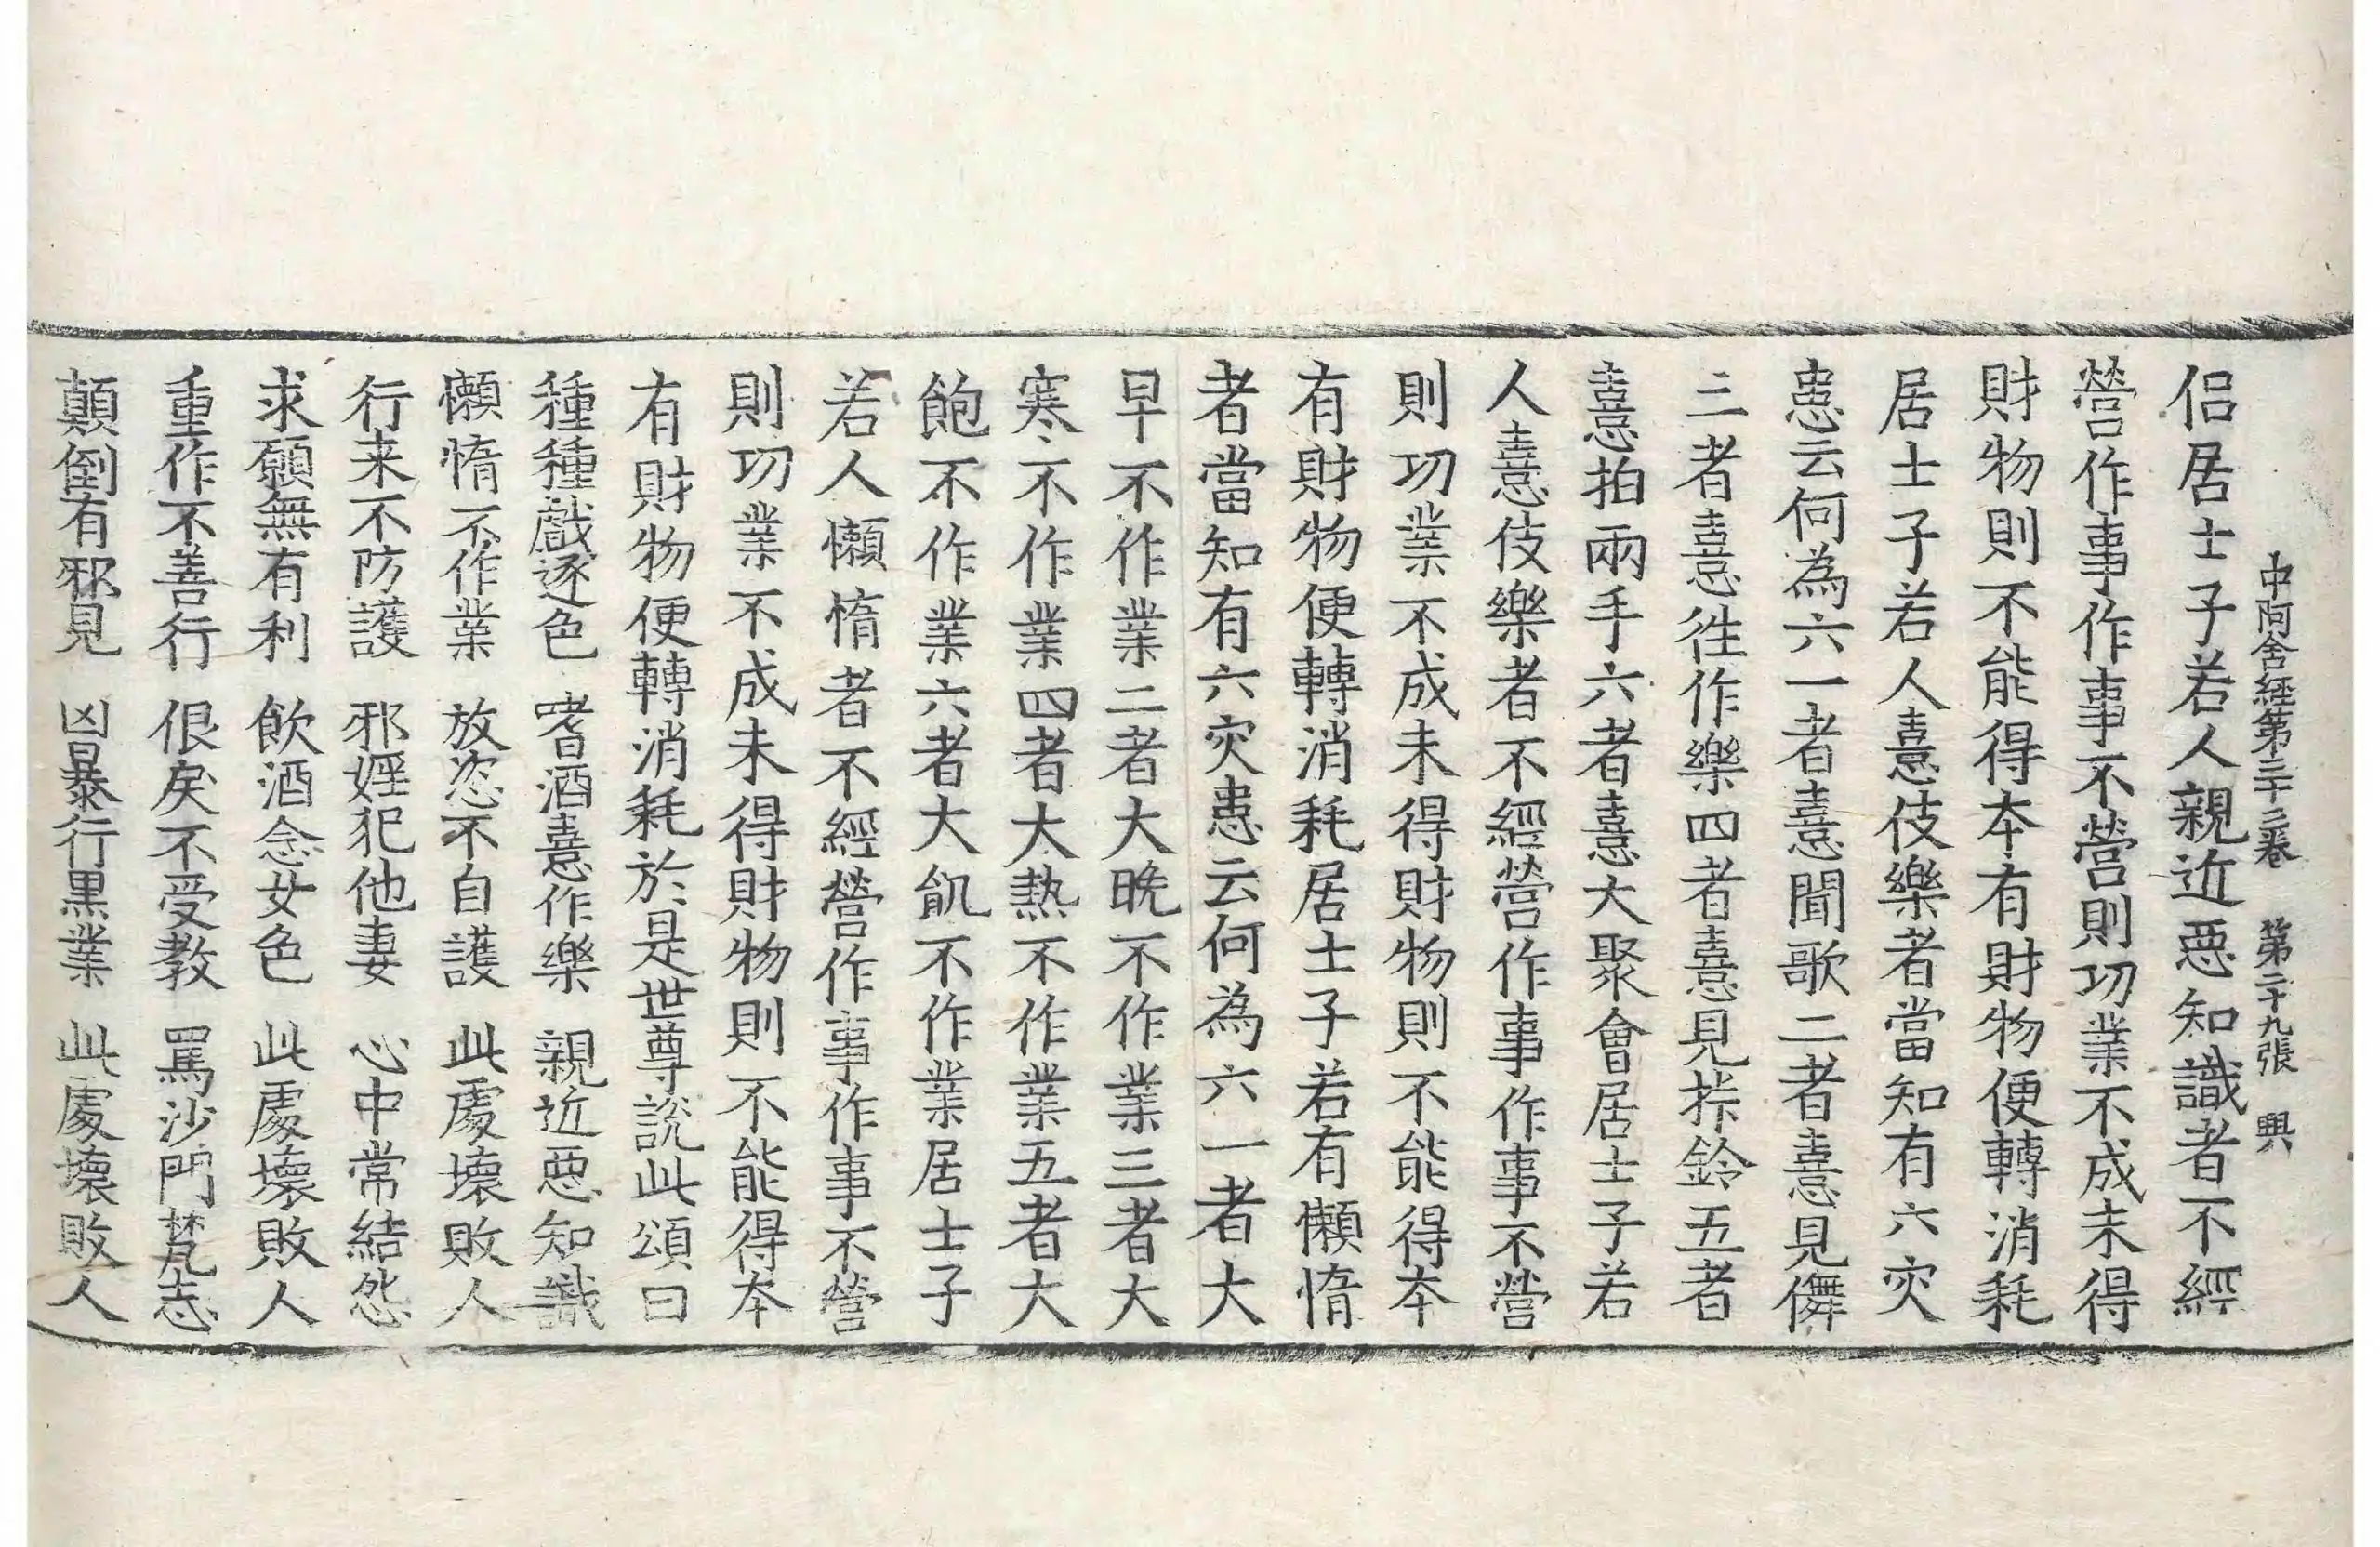 中阿含経第三十三卷 第二十九張 興
侣居士子若人親近惡知識者不經
營作事作事不營則功業不成未得
財物則不能得本有財物便轉消耗
居士子若人憙伎樂者當知有六灾
患云何為六一者憙聞歌二者憙見儛
三者憙徃作樂四者憙見拤鈴五者
憙拍兩手六者憙大聚會居士子若
人憙伎樂者不經營作事作事不營
則功業不成未得財物則不能得本
有財物便轉消耗居士子若有懶惰
者當知有六灾患云何為六一者大
早不作業二者大晩不作業三者大
寒不作業四者大熱不作業五者大
飽不作業六者大飢不作業居士子
若人懶惰者不經營作事作事不營
則功業不成未得財物則不能得本
有財物便轉消耗於是世尊說此頌曰
種種戲逐色 嗜酒憙作樂 親近惡知識
懶惰不作業 放恣不自護 此處壞敗人
行来不防護 邪婬犯他妻 心中常結怨
求願無有利 飲酒念女色 此處壞敗人
重作不善行 佷戾不受教 罵沙門梵志
顛倒有邪見 凶暴行黒業 此處壞敗人